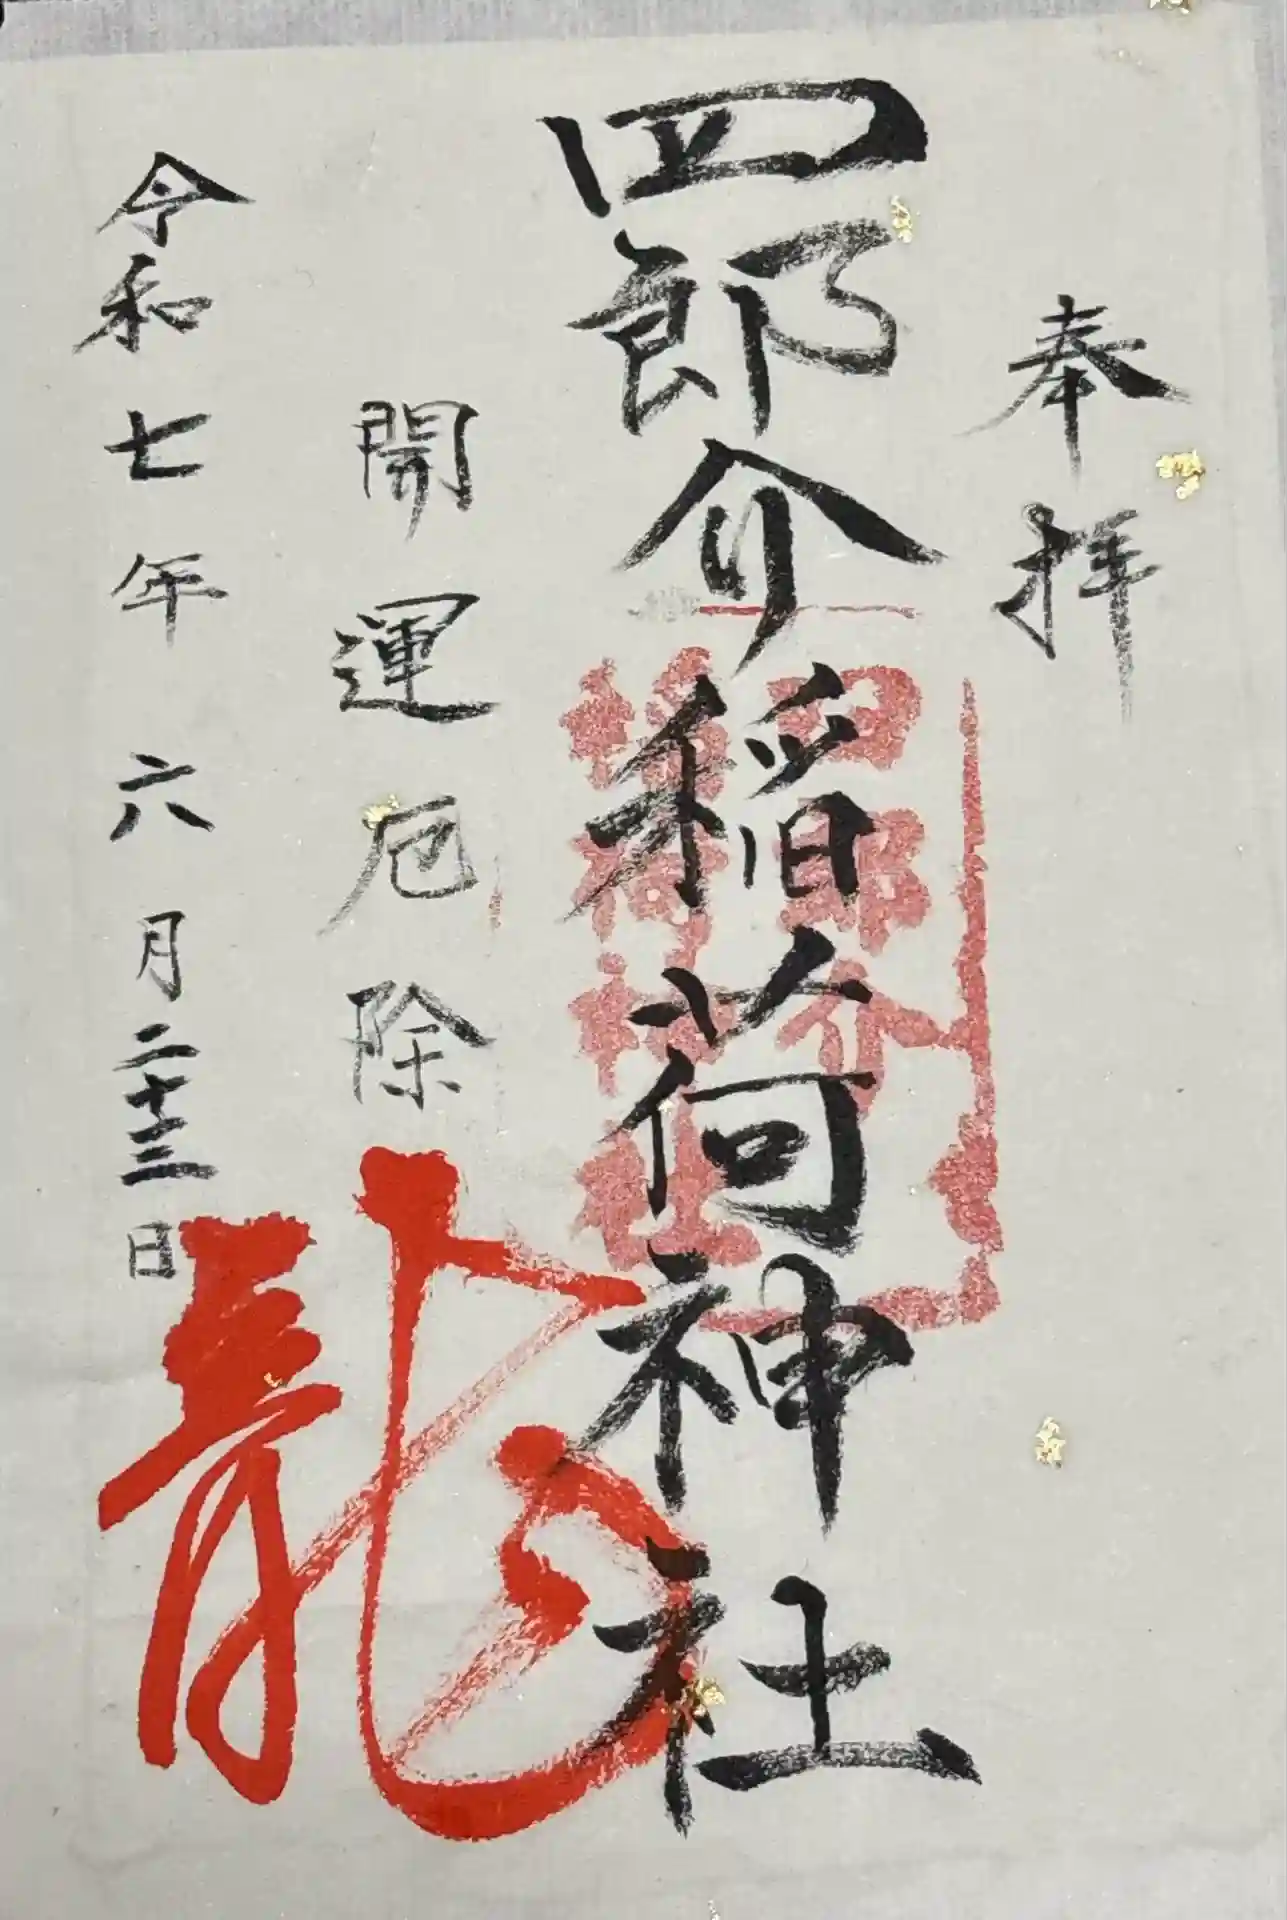 奉拝
四郎介稲荷神社
四郎介
稲荷神社
開運厄除
龍
令和七年六月二十三日